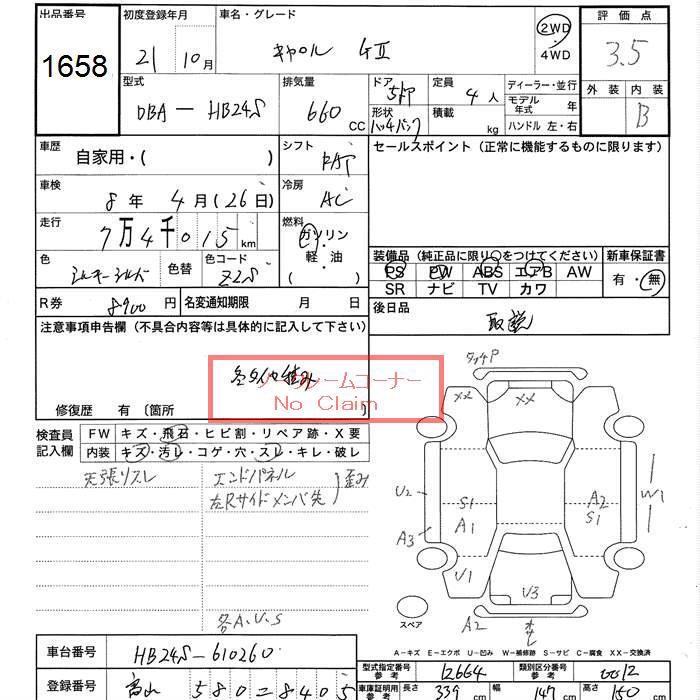 出品番号 初度登録年月 車名・グレード 評価点
1658 21 10月 キャロル GⅡ 2WD・4WD 3.5
型式 排気量 ドア 定員 ディーラー・並行 外装 内装
DBA-HB24S 660 CC 5ドア 4人 モデル年式 年 B
形状 ハッチバック 積載 kg ハンドル 左・右
車歴 自家用・( ) シフト FAT セールスポイント(正常に機能するものに限ります)
車検 8年 4月(26日) 冷房 AC
走行 7万4千015km 燃料 ガソリン・軽油 ( )
色 シルキーシルバー 色替 色コード Z2S
装備品(純正品に限り○をつけてください) 新車保証書
PS PW ABS エアB AW 有・無
SR ナビ TV カワ
R券 8900円 名変通知期限 月 日 後日品 取説
注意事項申告欄(不具合内容等は具体的に記入して下さい)
冬タイヤ積み
ノークレームコーナー
No Claim
修復歴 有〔箇所 〕
検査員記入欄 FW キズ・飛石・ヒビ割・リペア跡・X要
内装 キズ・汚レ・コゲ・穴・スレ・キレ・破レ
天張リスレ エンドパネル 歪み
左Rサイドメンバ先
各A.U.S
タッチP
XX XX
U2 S1 A2 W1
A3 A1 S1
U1 U3
スペア A2
A-キズ E-エクボ U-凹み W-補修跡 S-サビ C-腐食 XX-交換済
車台番号 HB24S-610260 型式指定番号 参考 12664 類別区分番号 参考 0012
登録番号 富山 580 2840 5 車庫証明用 参考 長さ 339cm 幅 147cm 高さ 150cm